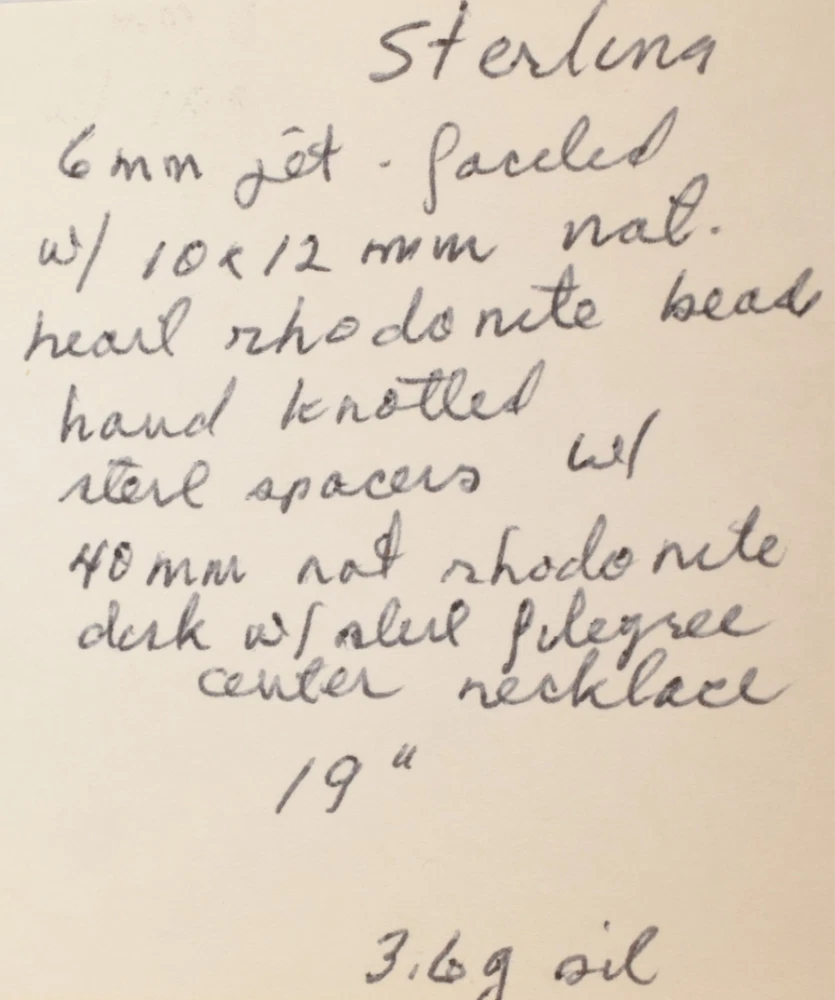 Sterling
6mm jet - faceted
w/ 10x12 mm nat.
heart rhodonite beads
hand knotted
sterl spacers w/
40mm nat rhodonite
disk w/ sterl filegree
center necklace
19"
3.6g sil